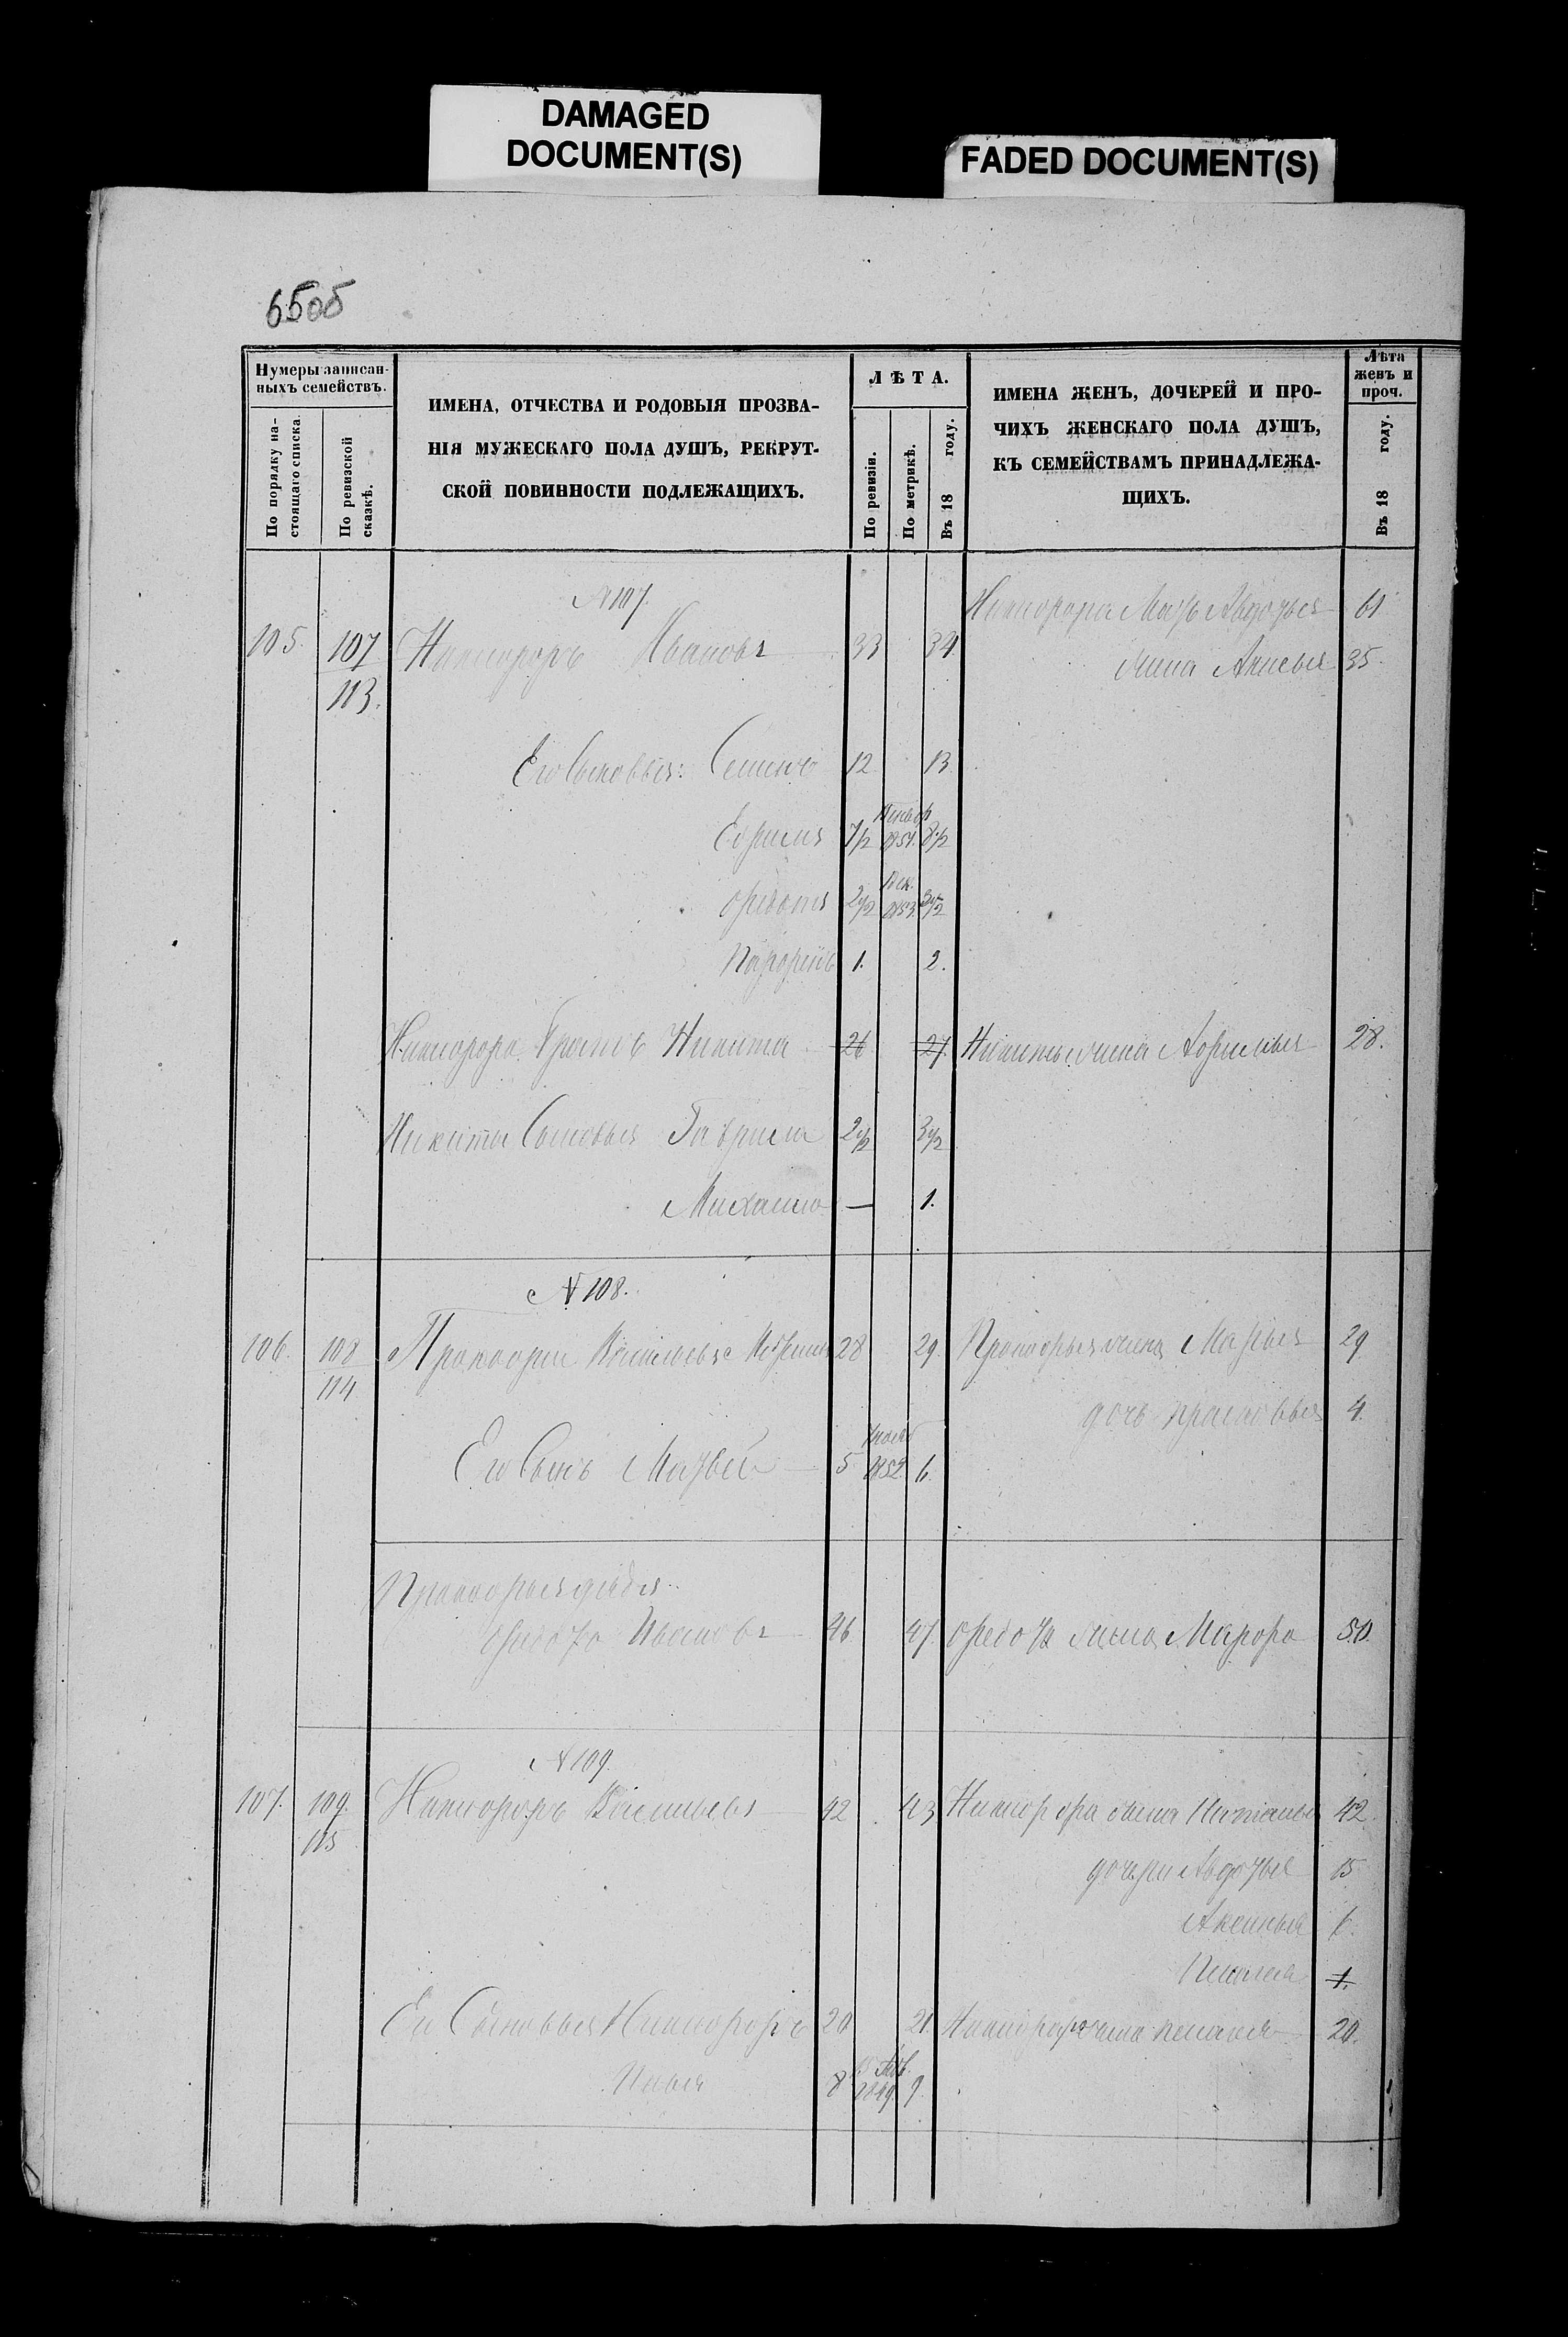 DAMAGED
DOCUMENT(S)
FADED DOCUMENT(S)
65об
Нумеры записан-
ныхъ семействъ.
По порядку на-
стоящаго списка.
По ревизской
сказкѣ.
ИМЕНА, ОТЧЕСТВА И РОДОВЫЯ ПРОЗВА-
НІЯ МУЖЕСКАГО ПОЛА ДУШЪ, РЕКРУТ-
СКОЙ ПОВИННОСТИ ПОДЛЕЖАЩИХЪ.
ЛѢТА.
По ревизіи.
По метрикѣ.
Въ 18 году.
ИМЕНА ЖЕНЪ, ДОЧЕРЕЙ И ПРО-
ЧИХЪ ЖЕНСКАГО ПОЛА ДУШЪ,
КЪ СЕМЕЙСТВАМЪ ПРИНАДЛЕЖА-
ЩИХЪ.
Лѣта
женъ и
проч.
Въ 18 году.
N 107.
Никифора Мать Авдотья 61
105. 107 Никифоръ Ивановъ 33 34
113.
жена Анисья 35.
Его Сыновья: Семенъ 12 13
Ефимъ 7 1/2 1851. 8 1/2
Федотъ 2 1/2 1853. 3 1/2
Парфенъ 1. 2.
Никифора Братъ Никита 26 27. Никиты жена Афимья 28.
Никиты Сыновья Гаврила 2 1/2 3 1/2
Михаило — 1.
N 108.
106. 108 Прокофiй Васильевъ 28 29. Прокофья жена Марья 29
114
дочь Прасковья 4.
Его Сынъ Матвей 5 1852 6.
Прокофья дядя
Федотъ Ивановъ 46 47. Федота жена Марфа 50.
N 109.
107. 109. Никифоръ Васильевъ 42 43 Никифора жена Наталья 42.
115
дочери Авдотья 15
Аксинья
Пелагея 1.
Его Сыновья Никифоръ 20 21. Никифора жена Пелагея 20.
Илья 8 1849. 9.